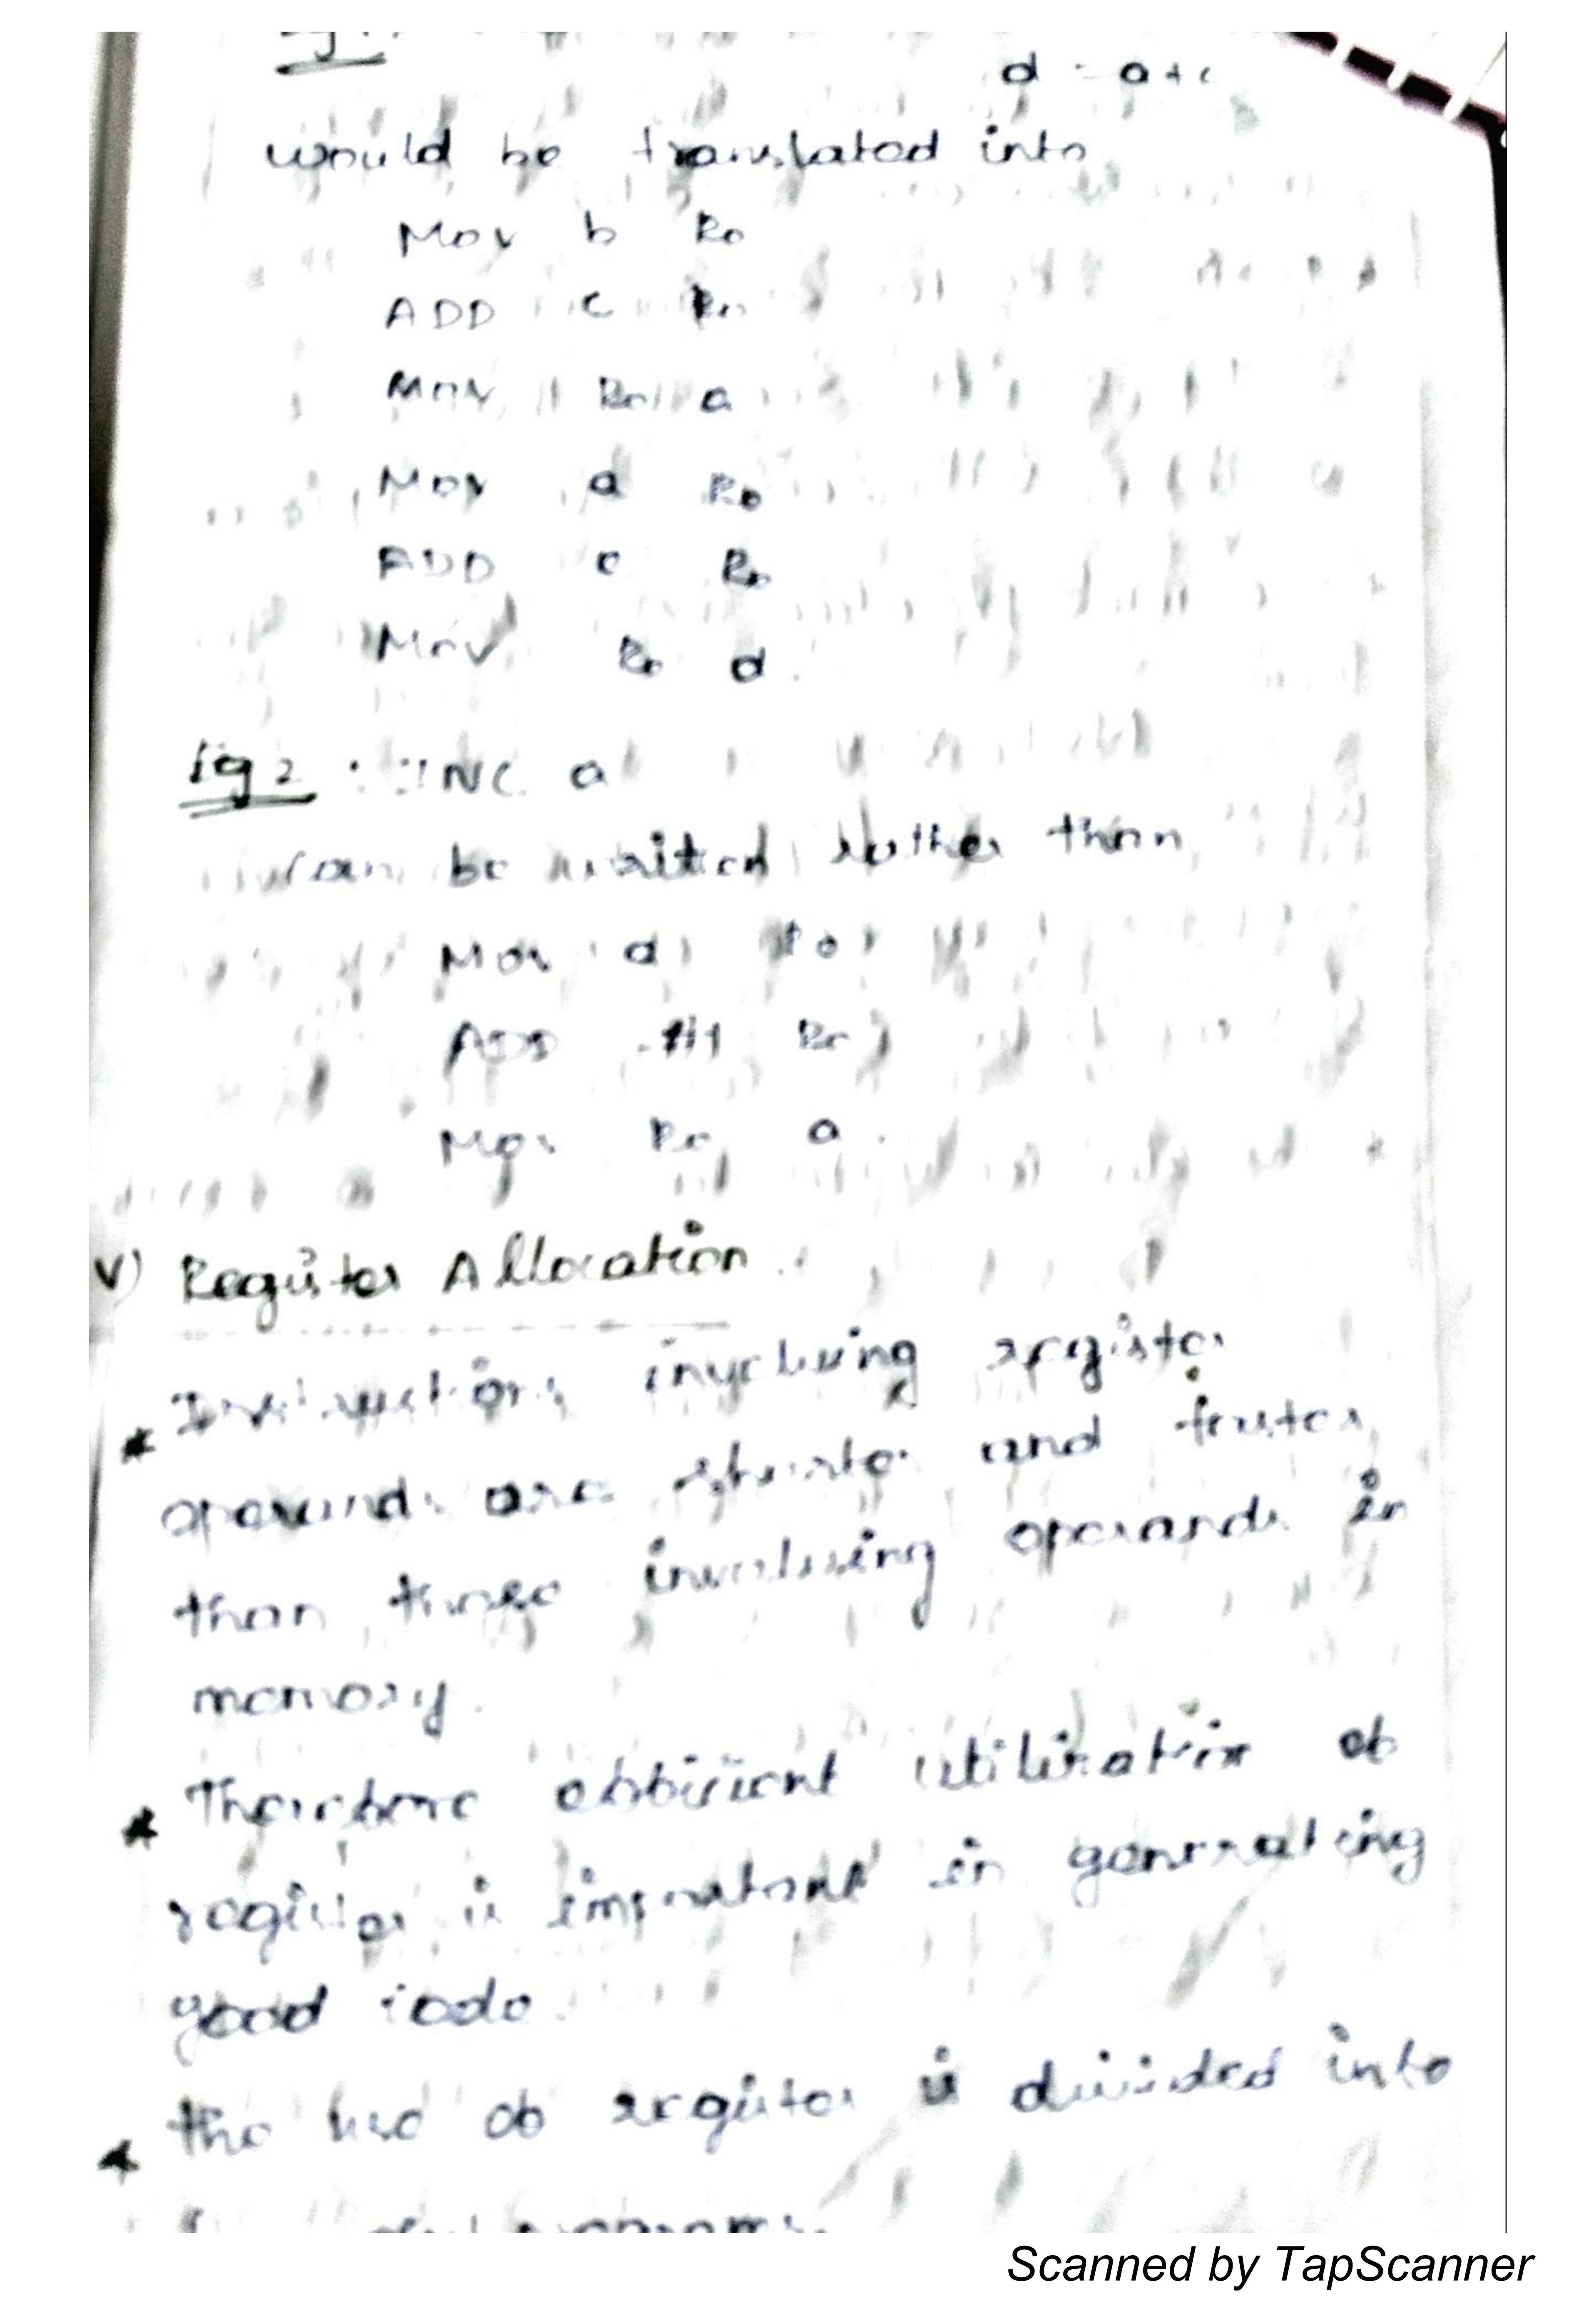 d = a + c
would be translated into
Mov b R0
ADD c R0
Mov R0 a
Mov a R0
ADD c R0
Mov R0 d
Eg 2 : INC a
can be written rather than
Mov a R0
ADD #1 R0
Mov R0 a
V) Register Allocation
* Instructions involving register
operands are shorter and faster
than those involving operands in
memory.
* Therefore efficient utilization of
register is important in generating
good code.
* the use of register is divided into
subproblems
Scanned by TapScanner